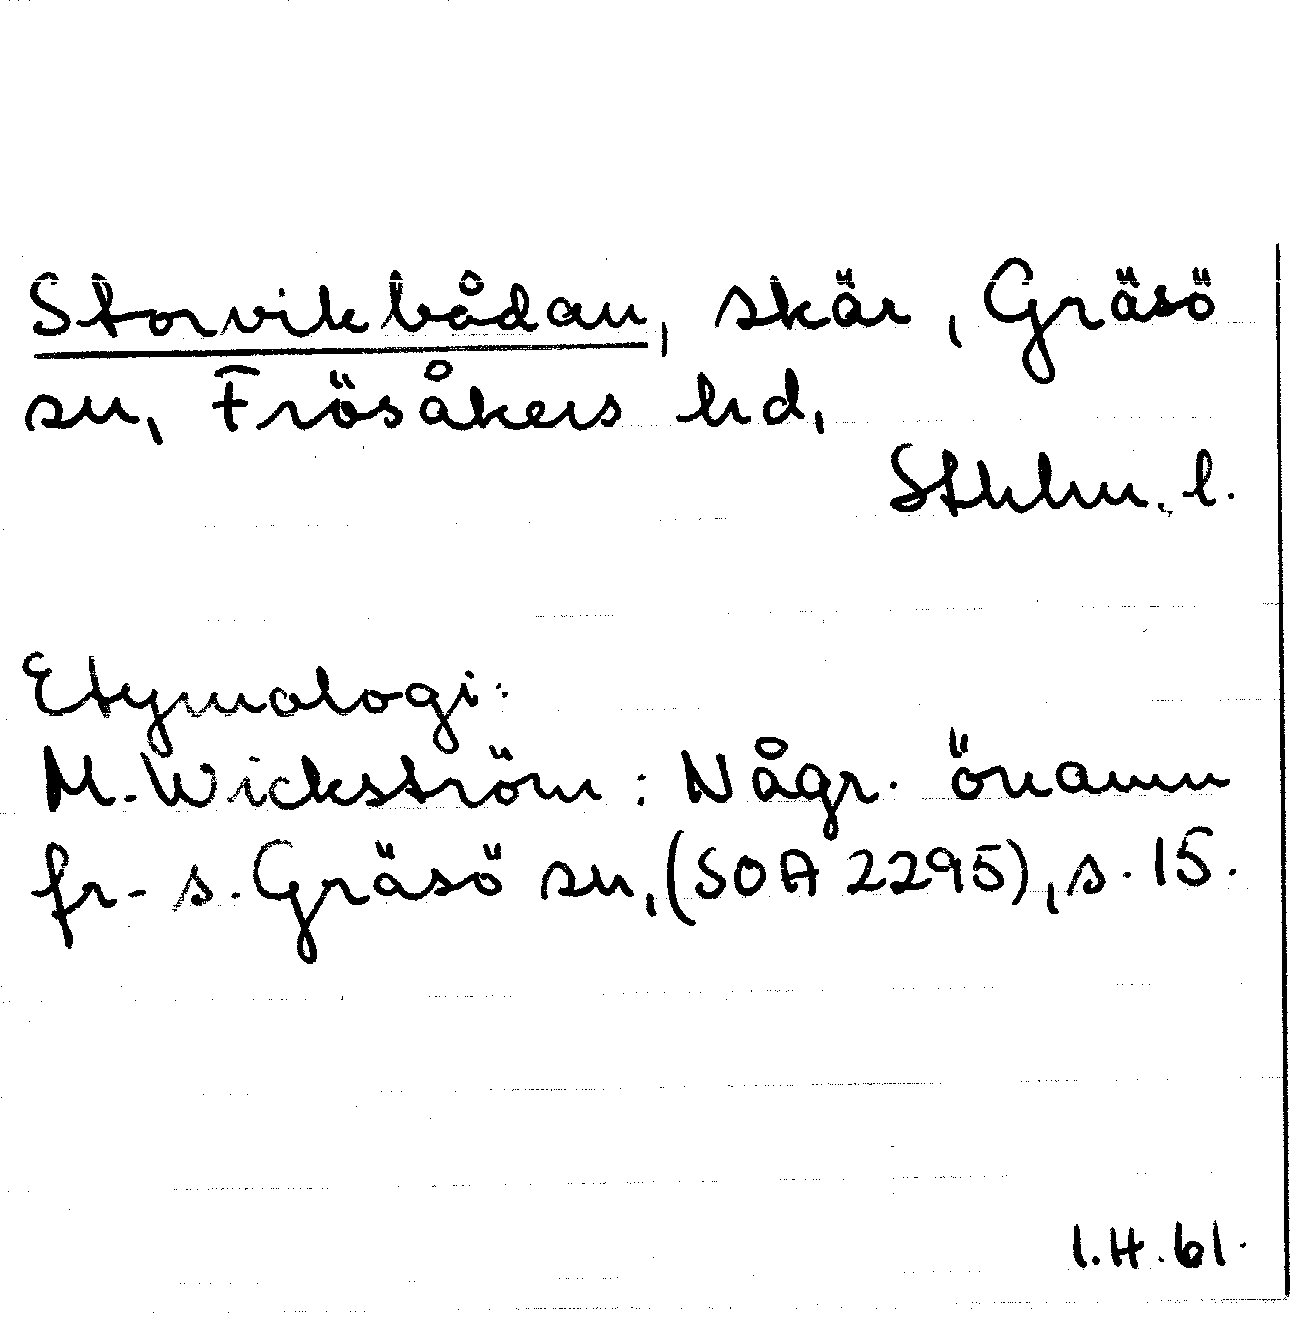 Storvikbådan, skär, Gräsö
sn, Frösåkers hd,
Sthlm. l.
Etymologi:
M. Wickström: Någr. önamn
fr. s. Gräsö sn, (SOA 2295), s. 15.
I.H. 61.